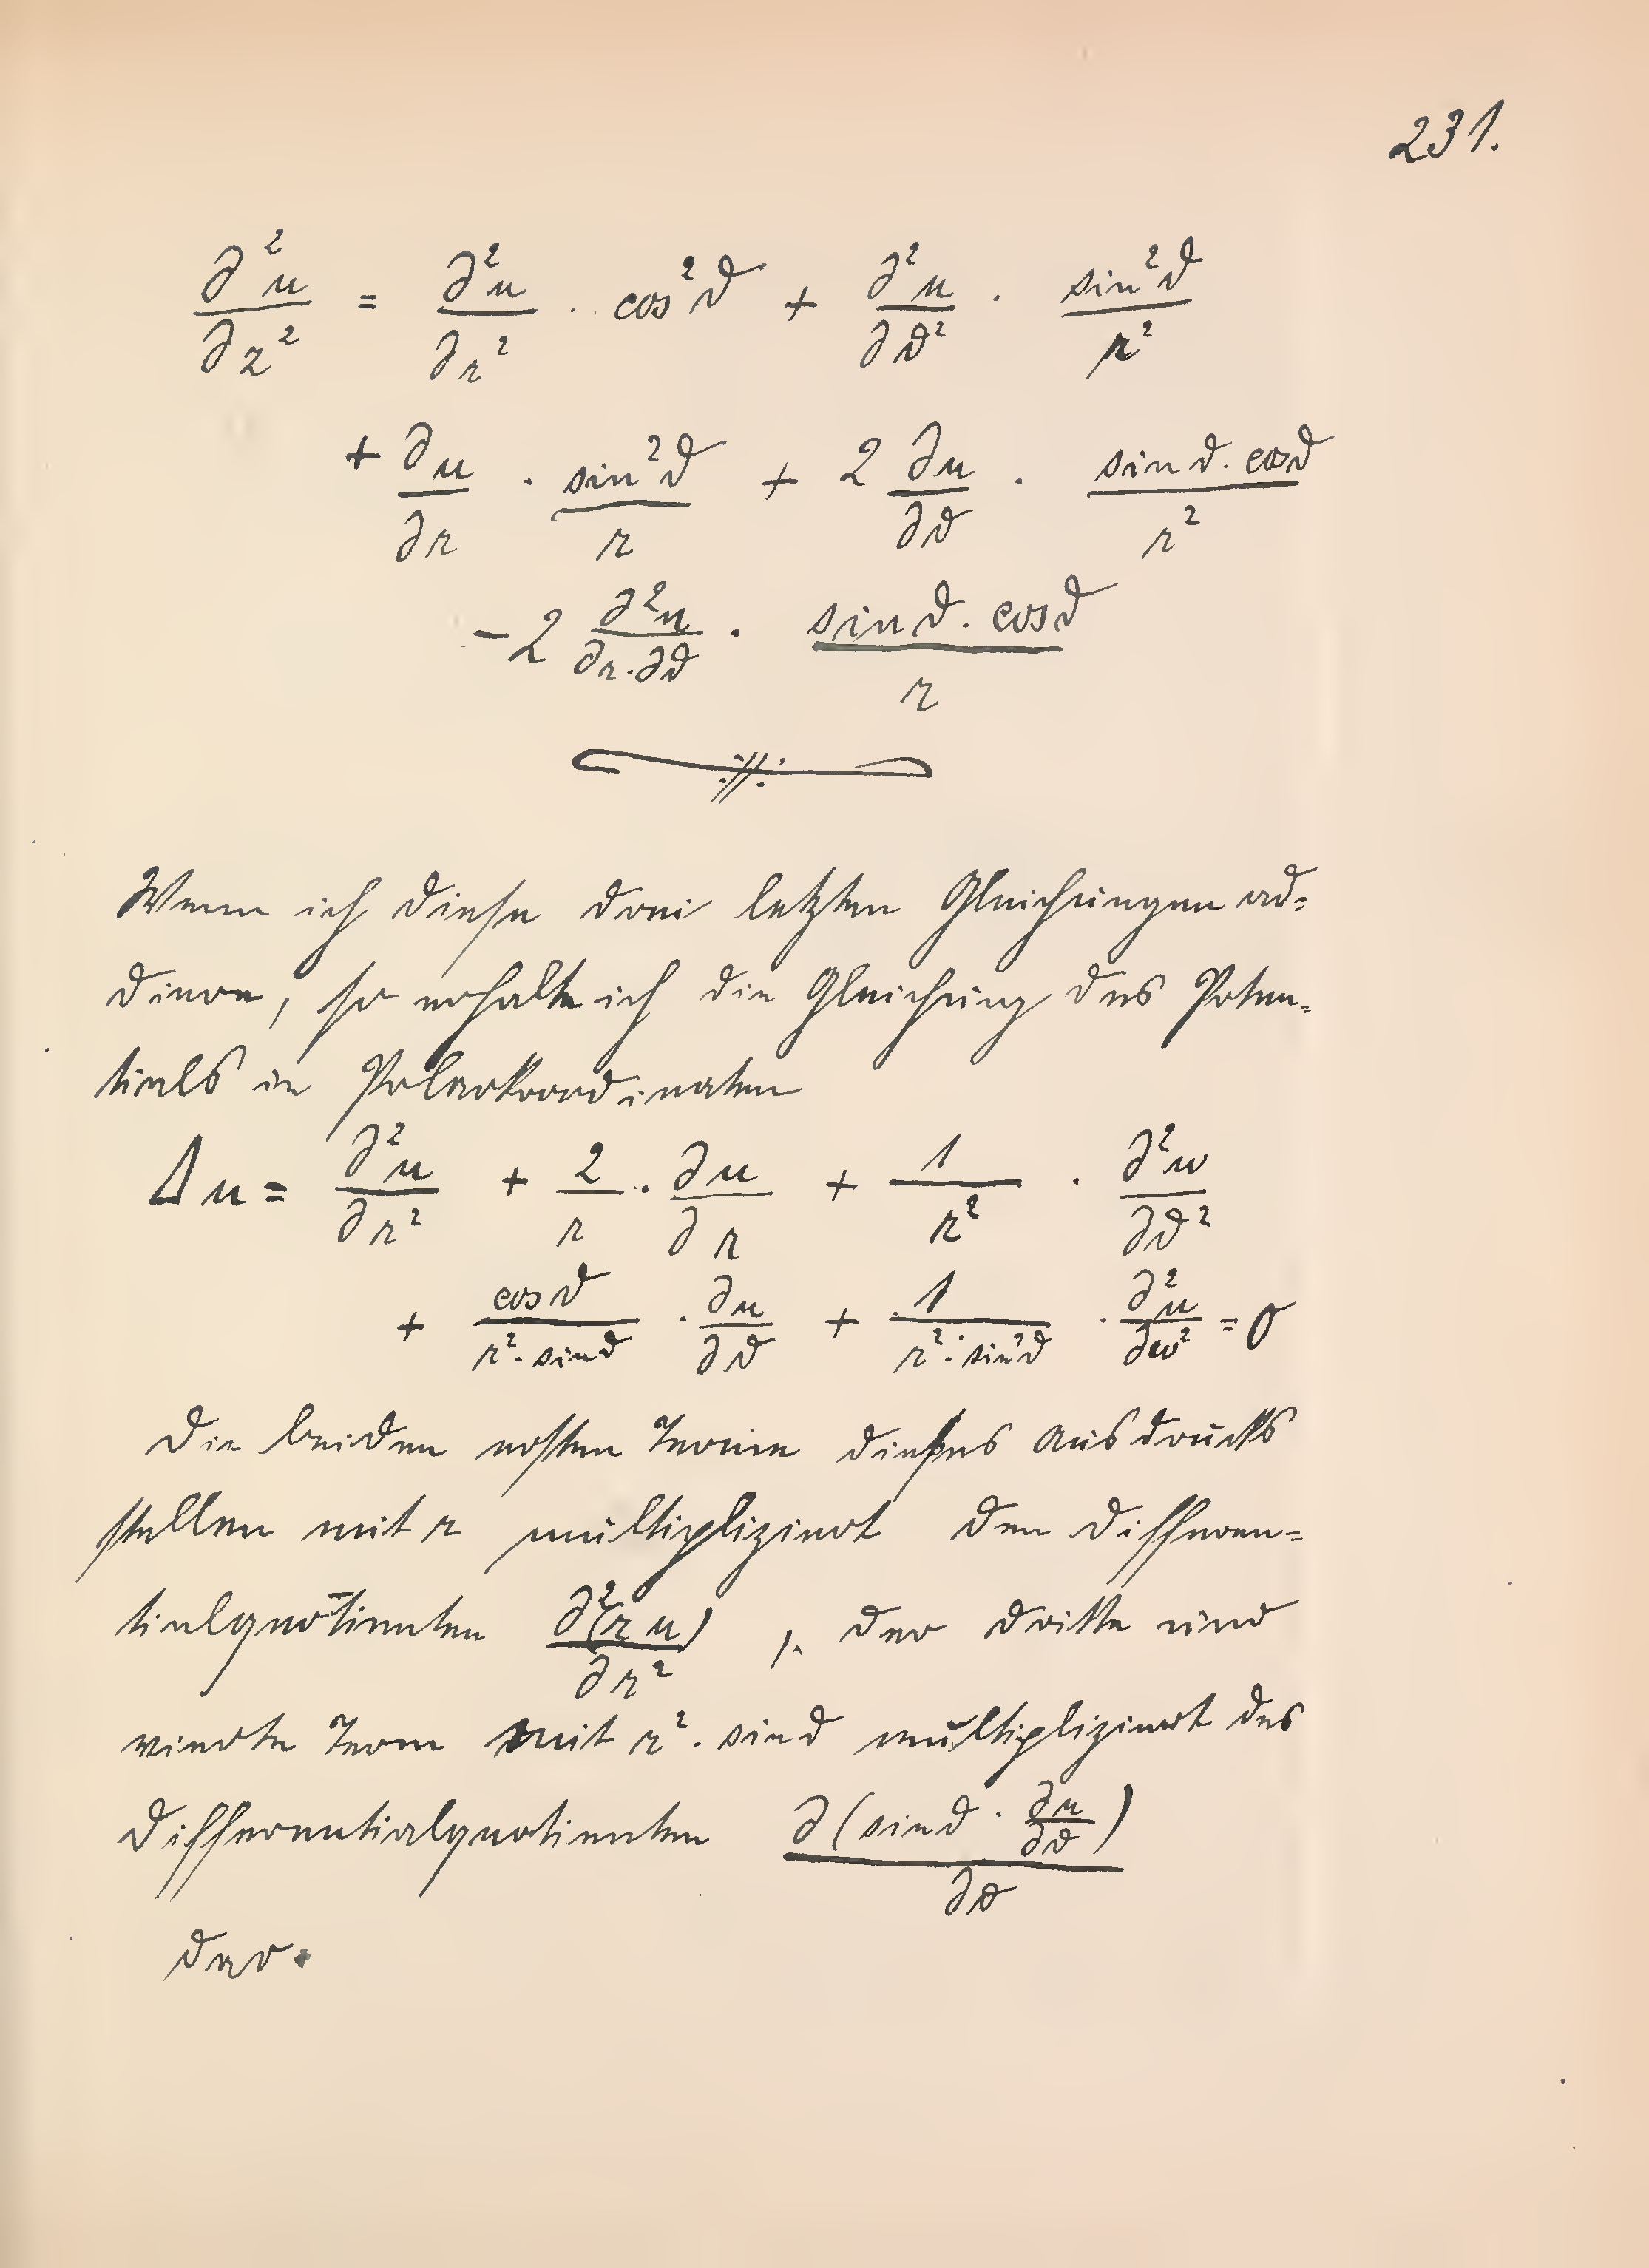 231.
∂²u/∂z² = ∂²u/∂r² · cos²ϑ + ∂²u/∂ϑ² · sin²ϑ/r²
+ ∂u/∂r · sin²ϑ/r + 2 ∂u/∂ϑ · sin ϑ. cosϑ/r²
- 2 ∂²u/∂r.∂ϑ · sin ϑ. cosϑ/r
Wenn ich diese drei letzten Gleichungen ad=
diere, so erhalte ich die Gleichung des Poten=
tials in Polarkoordinaten
Δu = ∂²u/∂r² + 2/r · ∂u/∂r + 1/r² · ∂²u/∂ϑ²
+ cosϑ/r². sinϑ · ∂u/∂ϑ + 1/r². sin²ϑ · ∂²u/∂w² = 0
Die beiden ersten Terme dieses Ausdrucks
stellen mit r multipliziert den Differen=
tialquotienten ∂²(r u)/∂r², der dritte und
vierte Term mit r². sinϑ multipliziert des
Differentialquotienten ∂(sinϑ · ∂u/∂ϑ)/∂ϑ
dar.